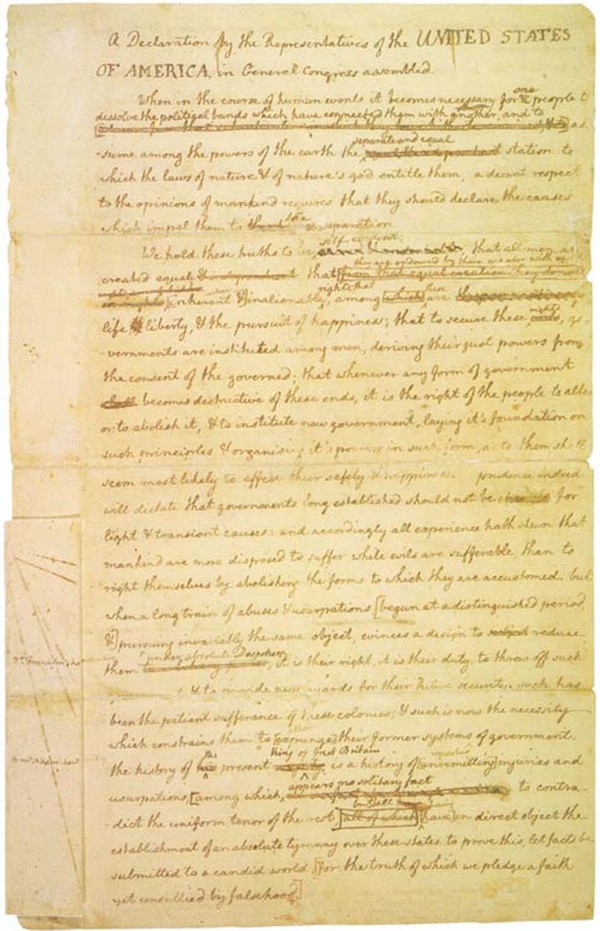 A Declaration by the Representatives of the UNITED STATES
OF AMERICA, in General Congress assembled.
When in the course of human events it becomes necessary for one people to
dissolve the political bands which have connected them with another, and to
as-
separate and equal
-sume among the powers of the earth the station to
which the laws of nature & of nature's god entitle them, a decent respect
to the opinions of mankind requires that they should declare the causes
which impel them to the separation.
self-evident;
We hold these truths to be that all men are
they are endowed by their creator with
created equal that from that equal creation they
rights that these
inherent & inalienable, among which are
life liberty, & the pursuit of happiness; that to secure these rights, go-
-vernments are instituted among men, deriving their just powers from
the consent of the governed; that whenever any form of government
becomes destructive of these ends, it is the right of the people to alter
or to abolish it, & to institute new government, laying it's foundation on
such principles & organising it's powers in such form, as to them shall
seem most likely to effect their safety & happiness. prudence indeed
will dictate that governments long established should not be for
light & transient causes: and accordingly all experience hath shewn that
mankind are more disposed to suffer while evils are sufferable, than to
right themselves by abolishing the forms to which they are accustomed. but
when a long train of abuses & usurpations [begun at a distinguished period,
&] pursuing invariably the same object, evinces a design to reduce
under absolute Despotism
them it is their right, it is their duty, to throw off such
& to provide new guards for their future security. such has
been the patient sufferance of these colonies; & such is now the necessity
which constrains them to [expunge] their former systems of government.
the King of Great Britain
the history of present is a history of [unremitting] injuries and
appears no solitary fact
usurpations, [among which, to contra-
but all
-dict the uniform tenor of the rest, [all of which] [have] in direct object the
establishment of an absolute tyranny over these states. to prove this, let facts be
submitted to a candid world, [for the truth of which we pledge a faith
yet unsullied by falsehood]